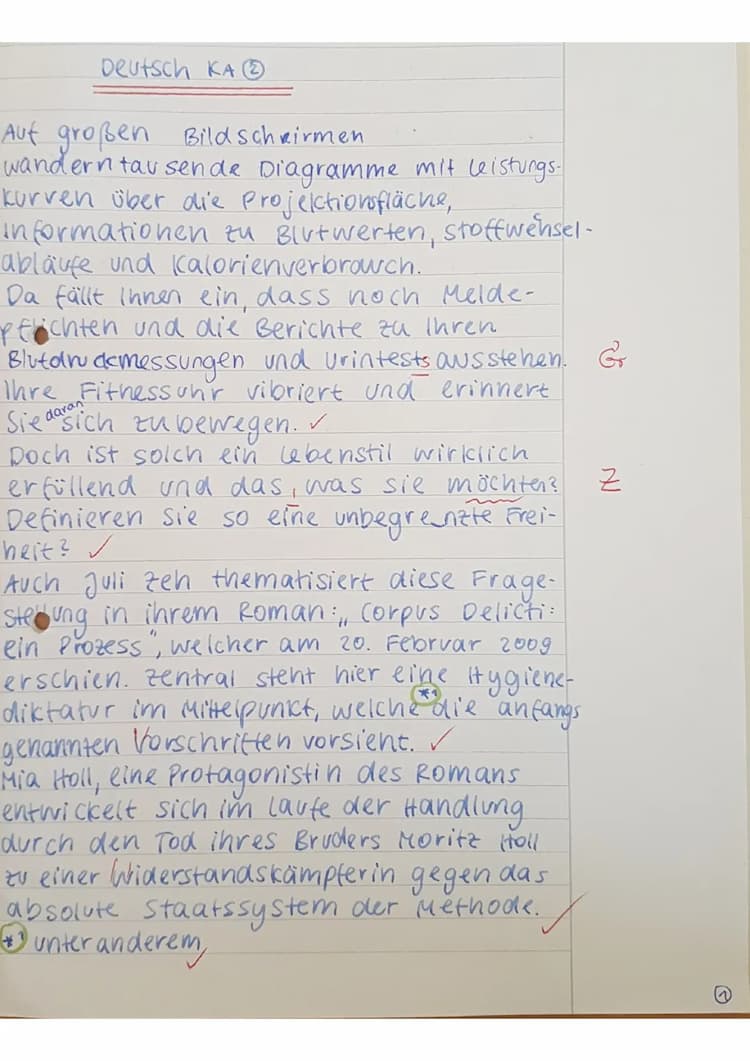 Deutsch KA ②
Auf großen Bildscheirmen
wandern tausende Diagramme mit Leistungs-
kurven über die Projektionsfläche,
Informationen zu Blutwerten, Stoffwehsel-
c
abläufe und Kalorienverbrauch.
Da fällt Ihnen ein, dass noch Melde-
pflichten und die Berichte zu Ihren
Blutdruckmessungen und Urintests ausstehen. Gr
Ihre Fitnessuhr vibriert und erinnert
Sie daran sich zu bewegen. ✓
Doch ist solch ein Lebenstil wirklich
erfüllend und das, was sie möchten? Z
Definieren Sie so eine unbegrenzte Frei-
heit? ✓
Auch Juli Zeh thematisiert diese Frage-
stellung in ihrem Roman: „Corpus Delicti:
ein Prozess", welcher am 20. Februar 2009
erschien. Zentral steht hier eine Hygiene-
diktatur im Mittelpunkt, welche *¹ die anfangs
genannten Vorschriften vorsieht. ✓
Mia Holl, eine Protagonistin des Romans
entwickelt sich im Laufe der Handlung
durch den Tod ihres Bruders Moritz Holl
zu einer Widerstandskämpferin gegen das
absolute Staatssystem der Methode. ✓
*¹ unter anderem, ✓
①